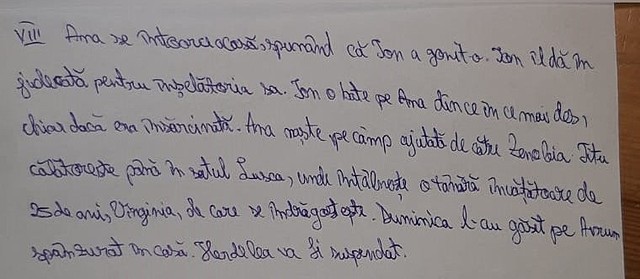 VIII Ana se întoarce acasă, spunând că Ion a gonit-o. Ion îl dă în
judecată pentru înșelătoria sa. Ion o bate pe Ana din ce în ce mai des,
chiar dacă era însărcinată. Ana naște pe câmp ajutată de către Zenobia. Titu
călătorește până în satul Lușca, unde întâlnește o tânără învățătoare de
25 de ani, Virginia, de care se îndrăgostește. Duminica l-au găsit pe Avrum
spânzurat în casă. Herdelea va fi suspendat.